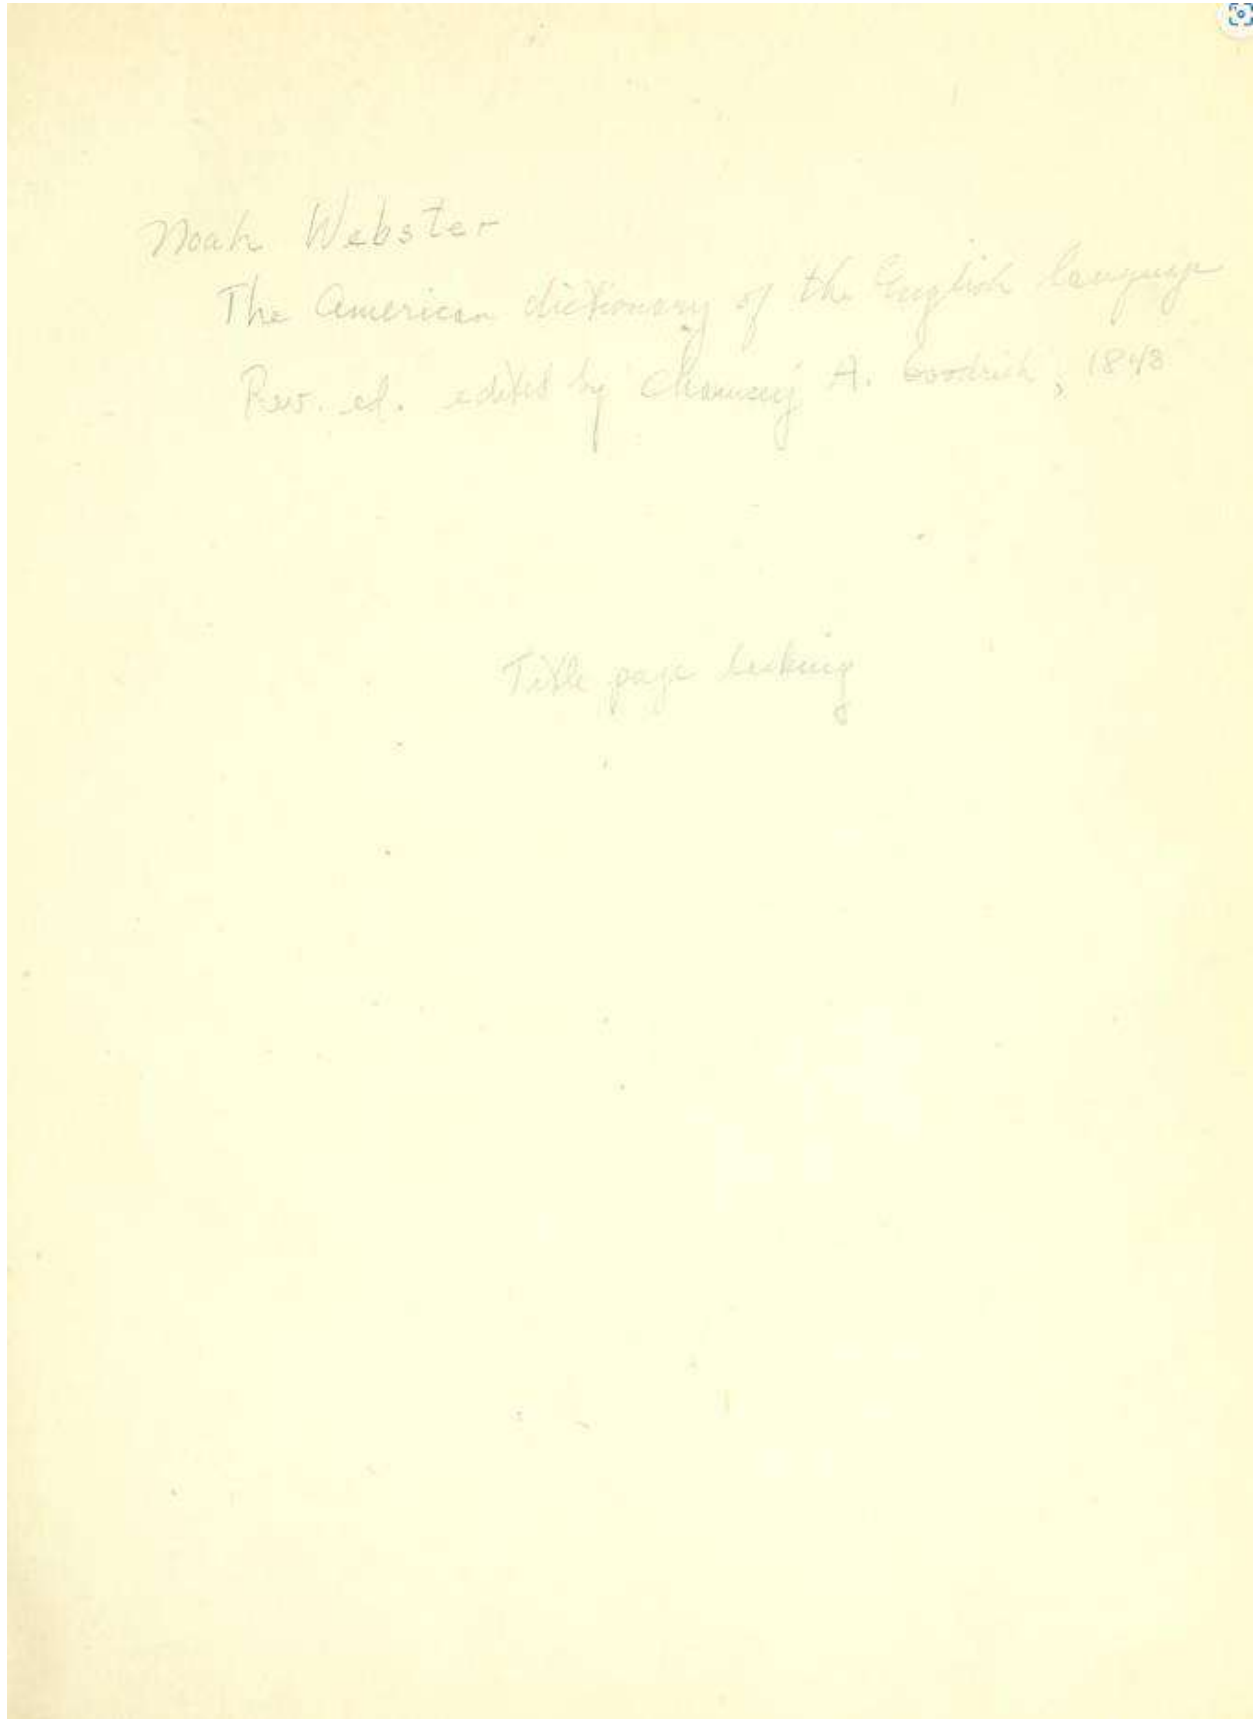 Noah Webster
The American dictionary of the English language
Rev. ed. edited by Chauncey A. Goodrich, 1848
Title page lacking